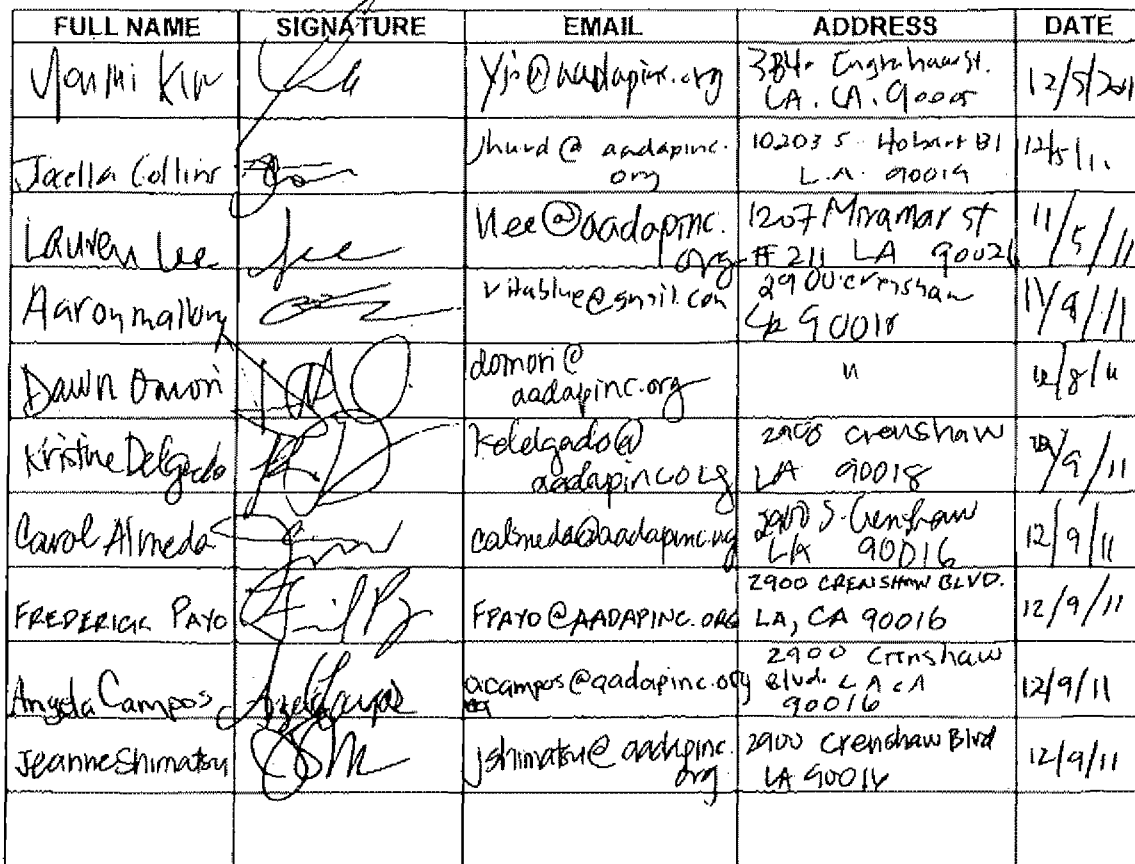 FULL NAME SIGNATURE EMAIL ADDRESS DATE
Youmi Kim yji@aadapinc.org 384
LA. CA. 90005 12/5/2011
Joella Collins jhurd@aadapinc.
org 10203 S. Hobart Bl
L.A. 12/5/11
Lauren Lee llee@aadapinc.
org 1207 Miramar st
#211 LA 11/5/11
Aaron mallory vitablue@gmail.com 2900 crenshaw
90018
Dawn Omori domori@
aadapinc.org " 12/8/11
Kristine Delgado kdelgado@
aadapinc.org crenshaw
LA 90018 /9/11
Carol Almeda calmeda@aadapinc.org 2900 S. Crenshaw
LA 90016 12/9/11
FREDERICK PAYO FPAYO@AADAPINC.ORG 2900 CRENSHAW BLVD.
LA, CA 90016 12/9/11
Angela Campos Angela Campos acampos@aadapinc.org 2900 Crenshaw
Blvd. LA CA
90016 12/9/11
Jeanne Shimatsu jshimatsu@aadapinc.
org 2900 Crenshaw Blvd
LA 90016 12/9/11